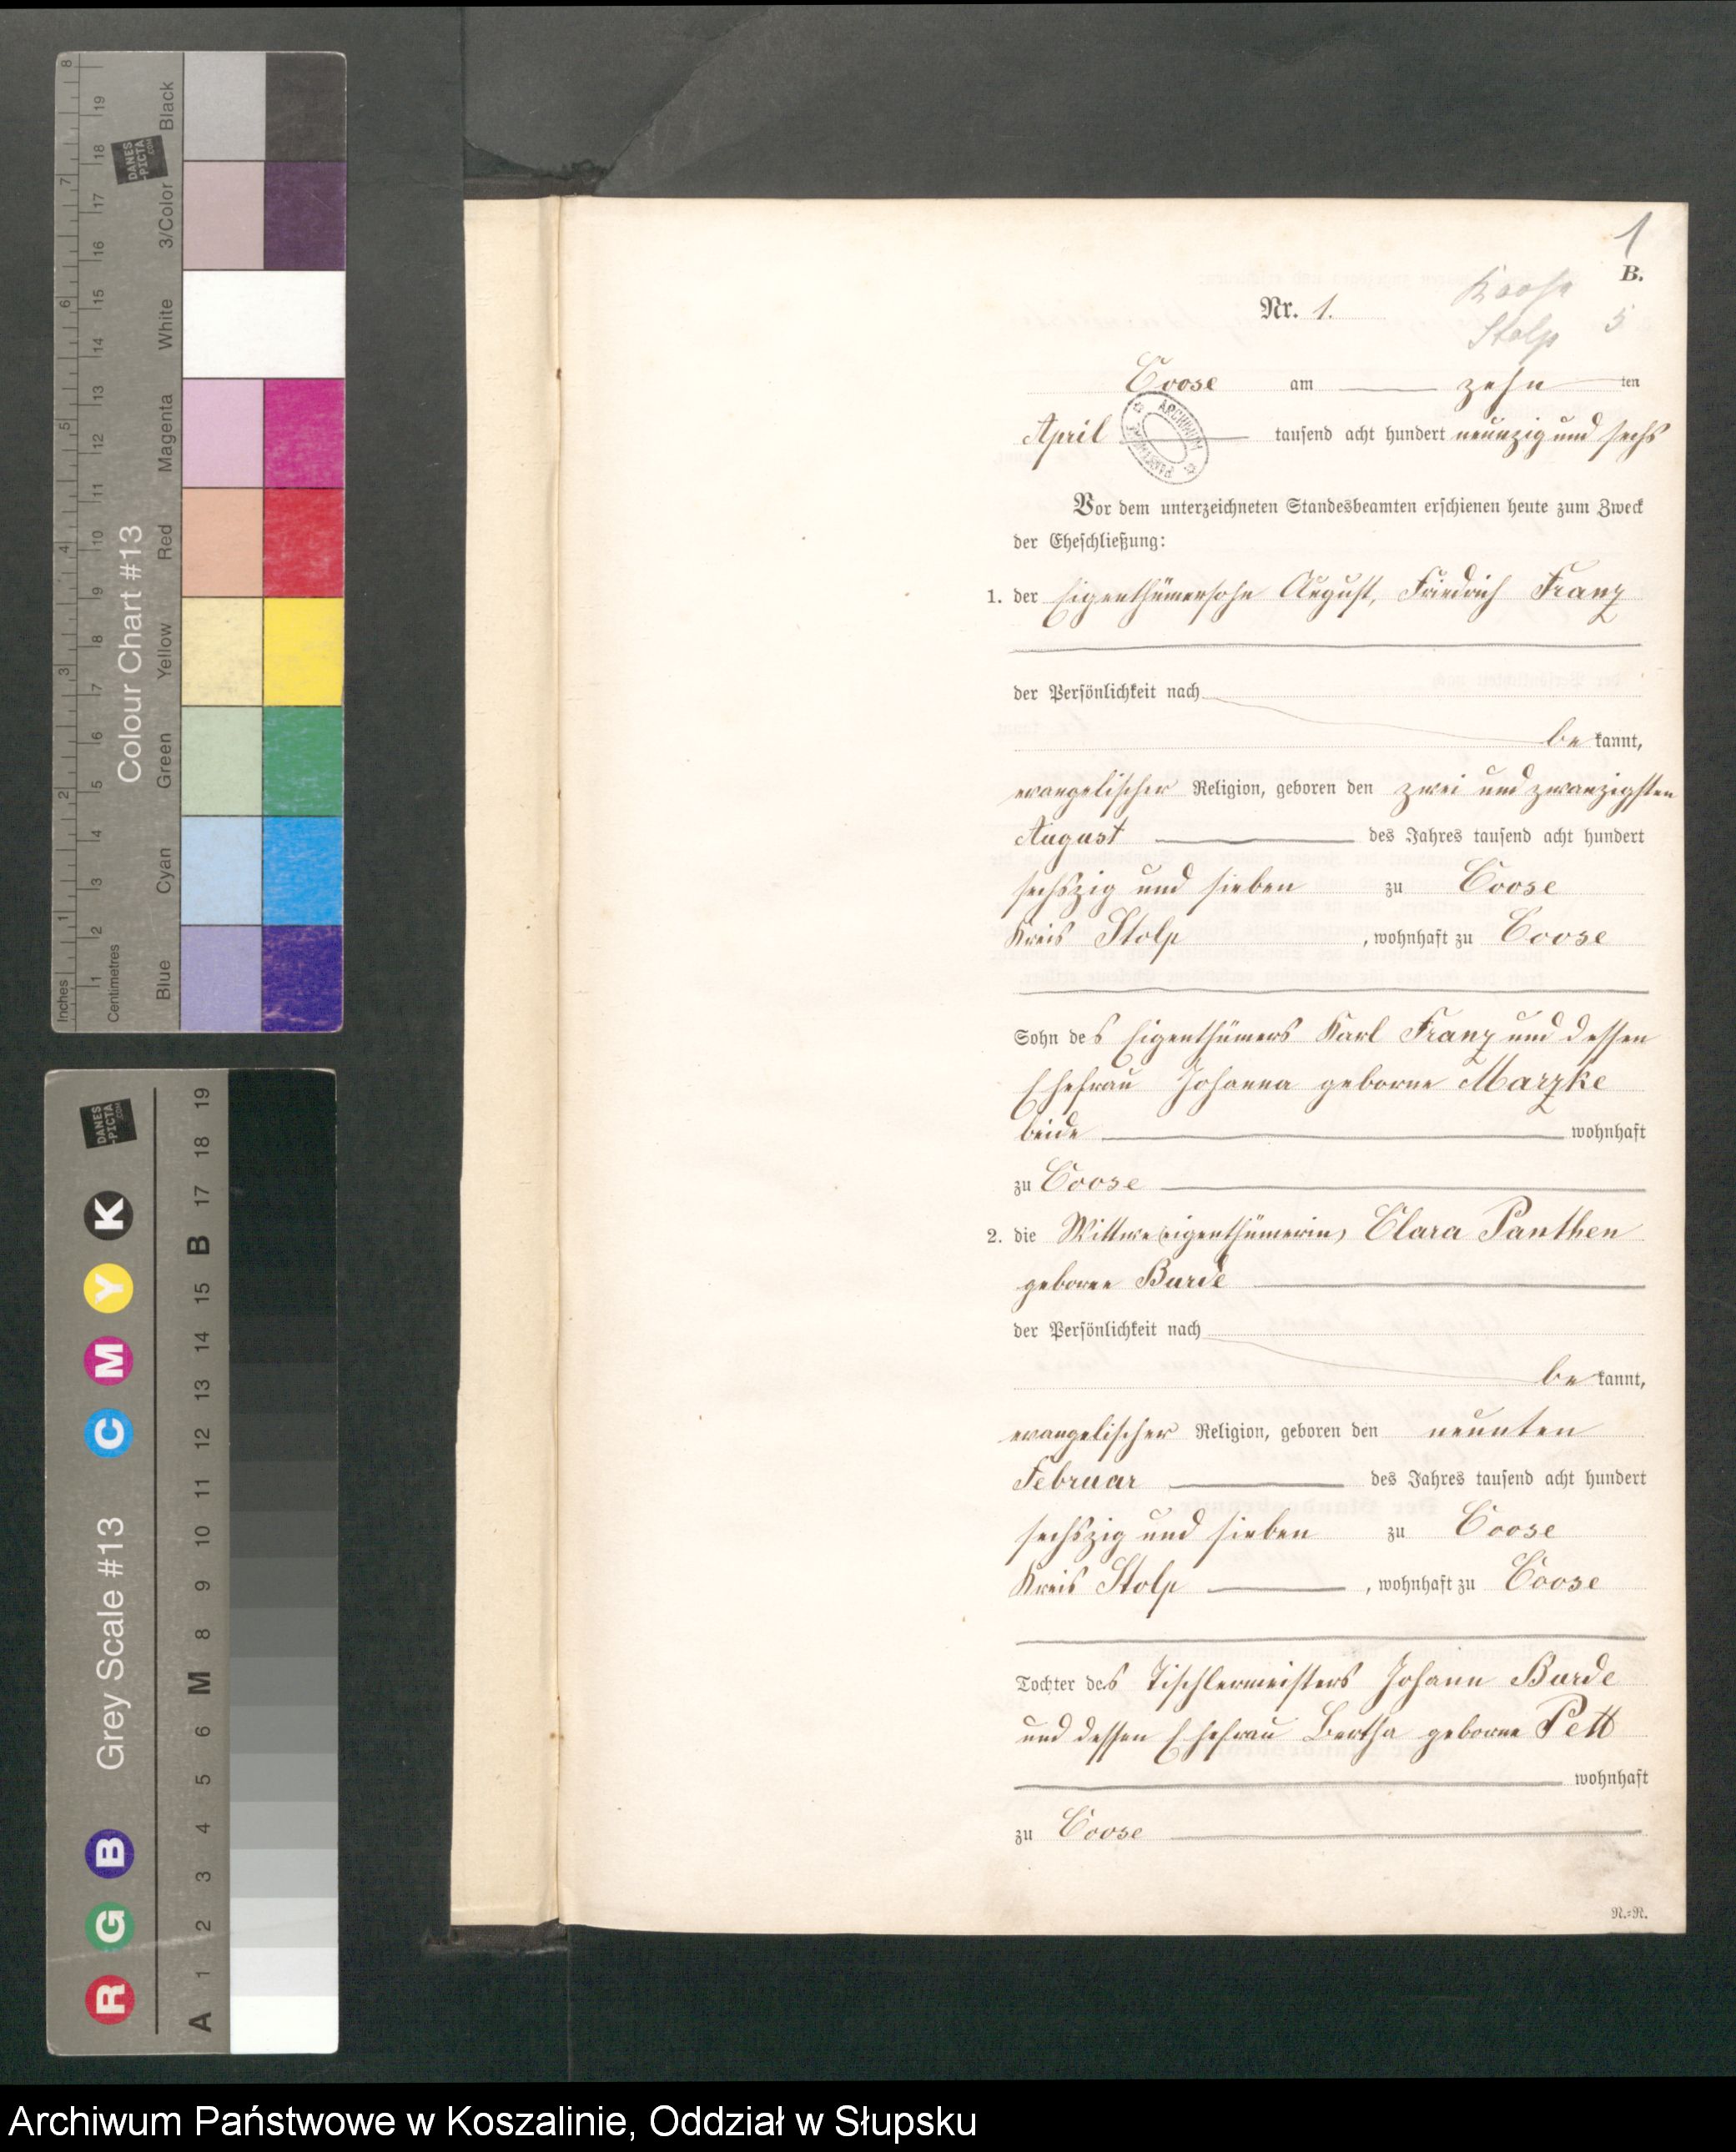 8
19
Black
DANES
-PICTA
.COM
18
7
17
3/Color
16
6
15
White
14
5
13
Magenta
12
11
4
10
Red
9
Colour Chart #13
8
Yellow
3
7
6
Green
2
5
4
Cyan
3
1
2
1
Blue
Inches
Centimetres
DANES
-PICTA
.COM
19
18
K
17
B
Y
15
14
M
13
C
12
11
10
Grey Scale #13
9
8
M
6
5
B
4
3
G
2
R
1
A
1
B.
Koose
Stolp
5
Nr. 1.
Coose am zehn ten
April tausend acht hundert neunzig und sechs
ARCHIWUM
Vor dem unterzeichneten Standesbeamten erschienen heute zum Zweck
der Eheschließung:
1. der Eigenthümersohn August, Friedrich Franz
der Persönlichkeit nach
be kannt,
evangelischer Religion, geboren den zwei und zwanzigsten
August des Jahres tausend acht hundert
sechszig und sieben zu Coose
Kreis Stolp, wohnhaft zu Coose
Sohn des Eigenthümers Karl Franz und dessen
Ehefrau Johanna geborne Marzke
beide wohnhaft
zu Coose
2. die Wittwe (eigenthümerin) Clara Panthen
geborne Burde
der Persönlichkeit nach
be kannt,
evangelischer Religion, geboren den neunten
Februar des Jahres tausend acht hundert
sechszig und sieben zu Coose
Kreis Stolp, wohnhaft zu Coose
Tochter des Tischlermeisters Johann Burde
und dessen Ehefrau Bertha geborne Pett
wohnhaft
zu Coose
R.=R.
Archiwum Państwowe w Koszalinie, Oddział w Słupsku